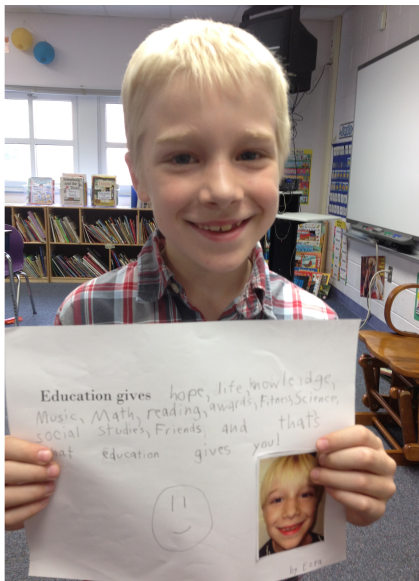 Education gives hope, life, knowledge,
Music, Math, reading, awards, Fitness, Science,
social studies, Friends, and that's
education gives you!
by